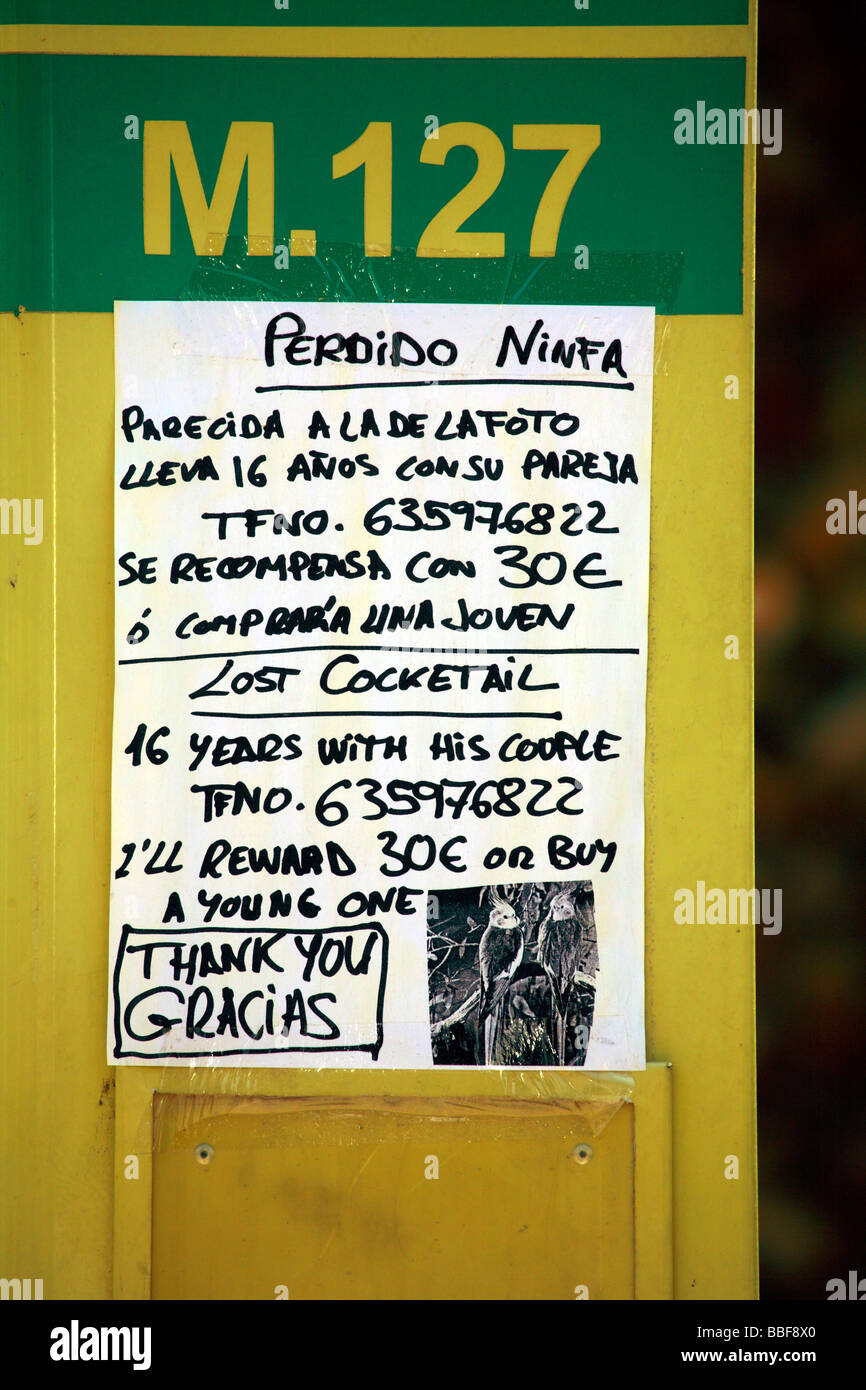 M.127
PERDIDO NINFA
PARECIDA A LA DE LA FOTO
LLEVA 16 AÑOS CON SU PAREJA
TFNO. 635976822
SE RECOMPENSA CON 30€
ó COMPRARÍA UNA JOVEN
LOST COCKETAIL
16 YEARS WITH HIS COUPLE
TFNO. 635976822
I'LL REWARD 30€ OR BUY
A YOUNG ONE
THANK YOU
GRACIAS
alamy
Image ID: BBF8X0
www.alamy.com